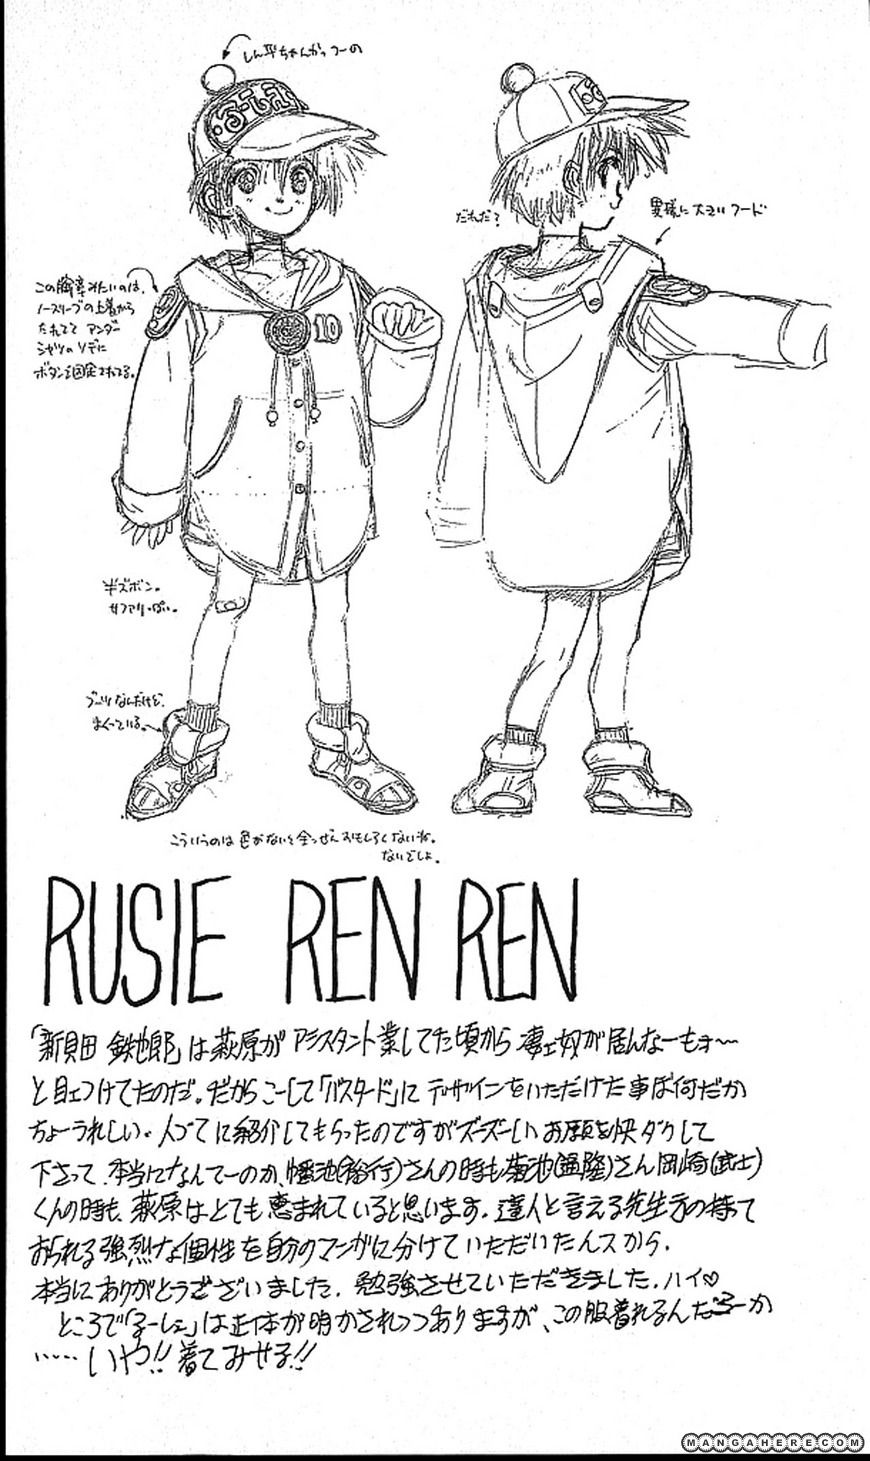 しん平ちゃんがっつーの
るーしぇ
だれだ？
異様に大きいフード
この胸章みたいのは、
ノースリーブの上着から
たれてて アンダー
シャツのソデに
ボタンで固定されてる。
10
半ズボン。
サファリっぽい。
ブーツなんだけど、
まくっている。
こういうのは色がないと全っぜんおもしろくないね。
ないでしょ。
RUSIE REN REN
「新貝田 鉄也郎」は萩原が アシスタント業してた頃から 凄ェ奴が居んなーもォ〜
と目ェつけてたのだ。だから こーして「バスタード」に デザインをいただけた事は何だか
ちょーうれしい。人づてに紹介してもらったのですがズーズーしいお願を快ダクして
下さって、本当になんてーのか、幡池(裕行)さんの時も菊池(通隆)さん岡崎(武士)
くんの時も、萩原はとても恵まれていると思います。達人と言える先生方の持って
おられる強烈な個性を自分のマンガに分けていただいたんスから、
本当にありがとうございました。勉強させていただきました。ハイ♡
ところで「るーしぇ」は正体が明かされつつありますが、この服着れるんだろーか
……いや!! 着てみせる!!
MANGAHERE.COM